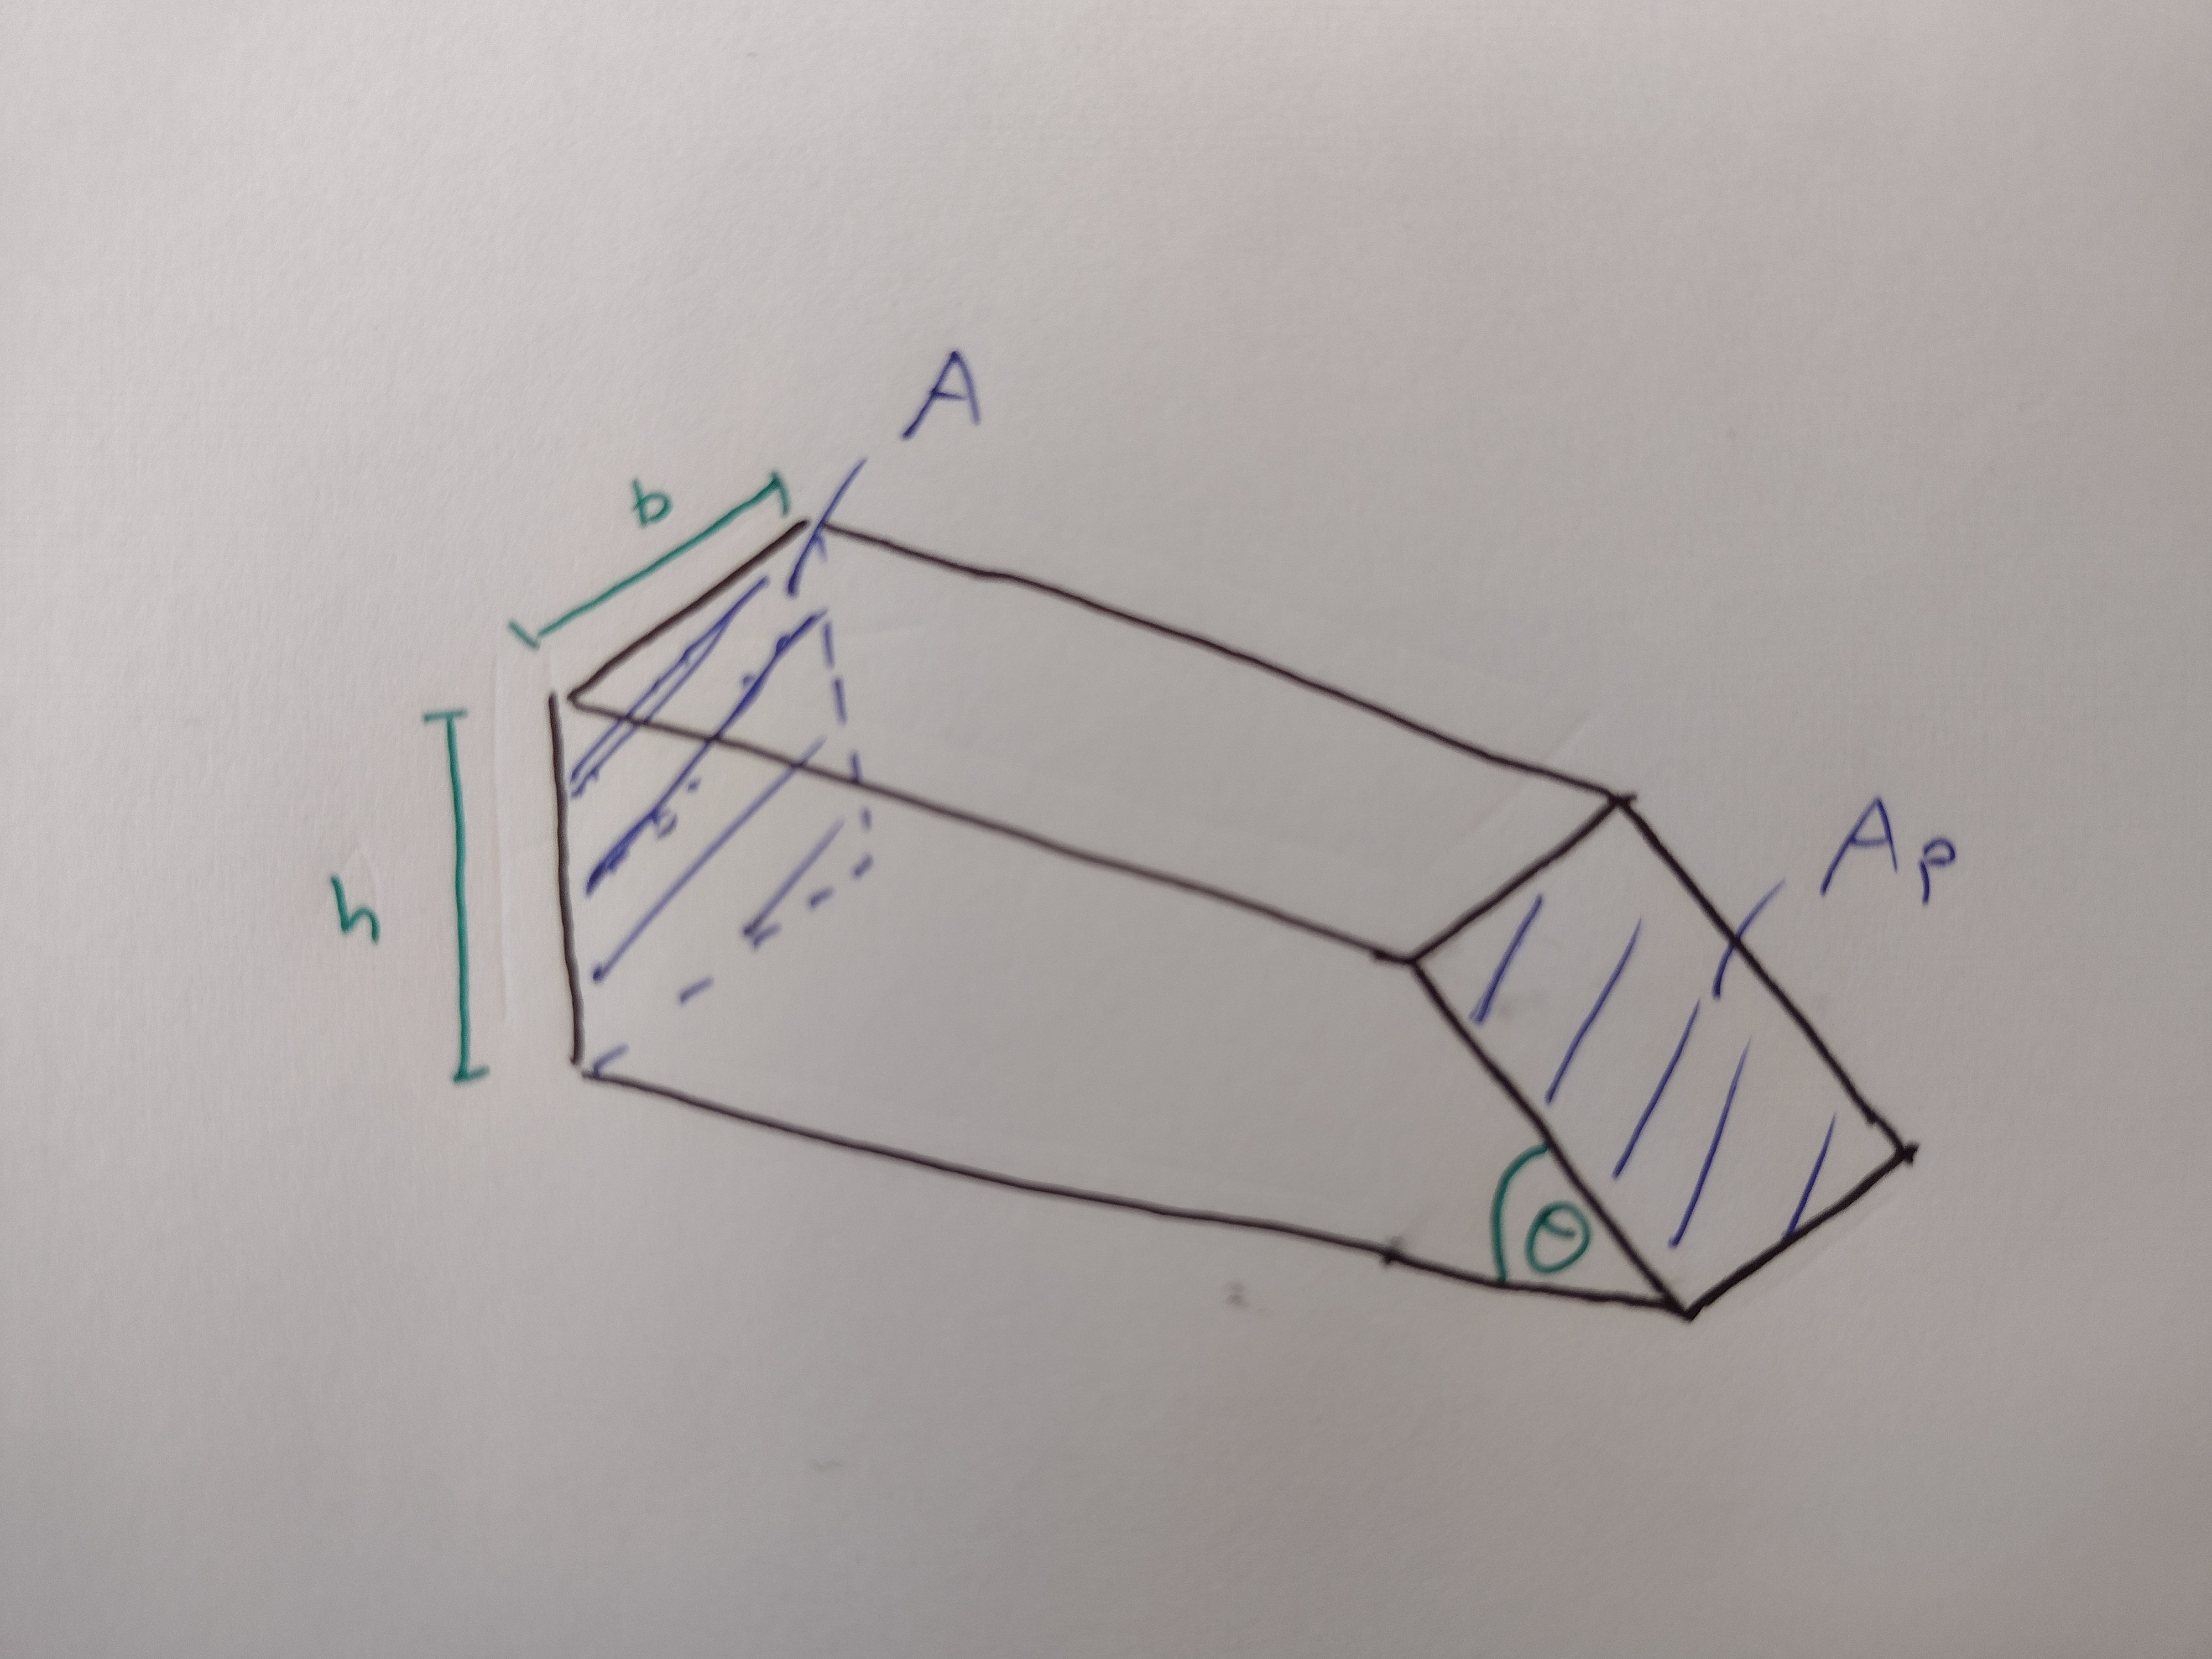 A
b
h
Ap
θ